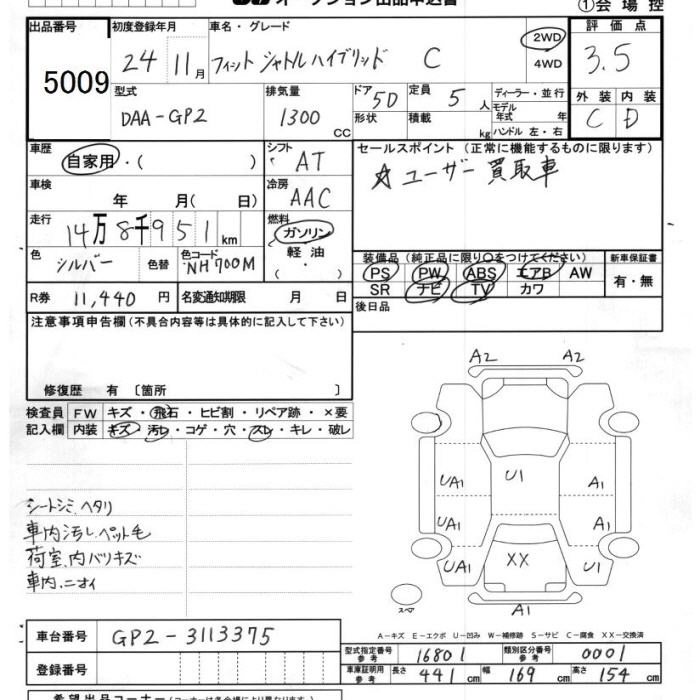 オークション出品申込書
①会場控
出品番号 5009
初度登録年月 24 11月
車名・グレード フィット シャトル ハイブリッド C
2WD
4WD
評価点 3.5
型式 DAA-GP2
排気量 1300 CC
ドア 5D
形状
定員 5 人
積載 kg
ディーラー・並行
モデル年式 年
ハンドル 左・右
外装 C
内装 D
車歴 自家用・( )
シフト AT
セールスポイント(正常に機能するものに限ります)
☆ユーザー買取車
車検 年 月( 日)
冷房 AAC
走行 14万8千951km
燃料 ガソリン
軽油
( )
色 シルバー 色替
色コード NH700M
装備品(純正品に限り○をつけてください)
PS PW ABS エアB AW
SR ナビ TV カワ
新車保証書 有・無
R券 11,440円
名変通知期限 月 日
後日品
注意事項申告欄(不具合内容等は具体的に記入して下さい)
修復歴 有 〔箇所 〕
検査員記入欄
FW キズ・飛石・ヒビ割・リペア跡・×要
内装 キズ・汚レ・コゲ・穴・スレ・キレ・破レ
シートシミ、ヘタリ
車内汚レ、ペット毛
荷室、内バリキズ
車内、ニオイ
A2 A2
UA1 U1 A1
UA1 A1
UA1 XX U1
スペア
A1
A-キズ E-エクボ U-凹み W-補修跡 S-サビ C-腐食 XX-交換済
車台番号 GP2-3113375
登録番号
型式指定番号 参考 16801
類別区分番号 参考 0001
車庫証明用 参考 長さ 441 cm 幅 169 cm 高さ 154 cm
希望出品コーナー